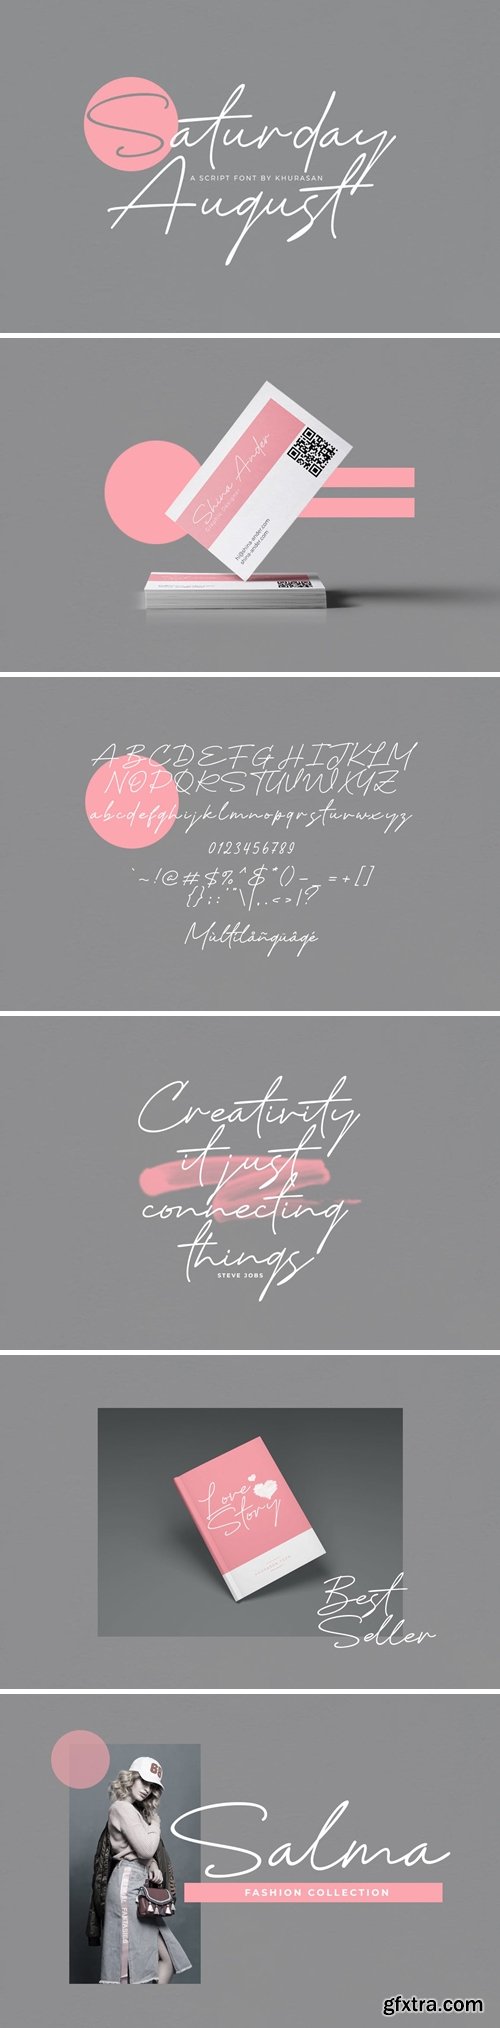 Saturday
A SCRIPT FONT BY KHURASAN
August
Shina Ander
Graphic Designer
hi@shina-ander.com
shina-ander.com
ABCDEFGHIJKLM
NOPQRSTUVWXYZ
abcdefghijklmnopqrstuvwxyz
0123456789
`~!@#$%^&*()-_=+[]
{};:'"\|,.<>/?
Mùltilåñgüâgé
Creativity
it just
connecting
things
STEVE JOBS
Love
Story
Best
Seller
Salma
FASHION COLLECTION
gfxtra.com